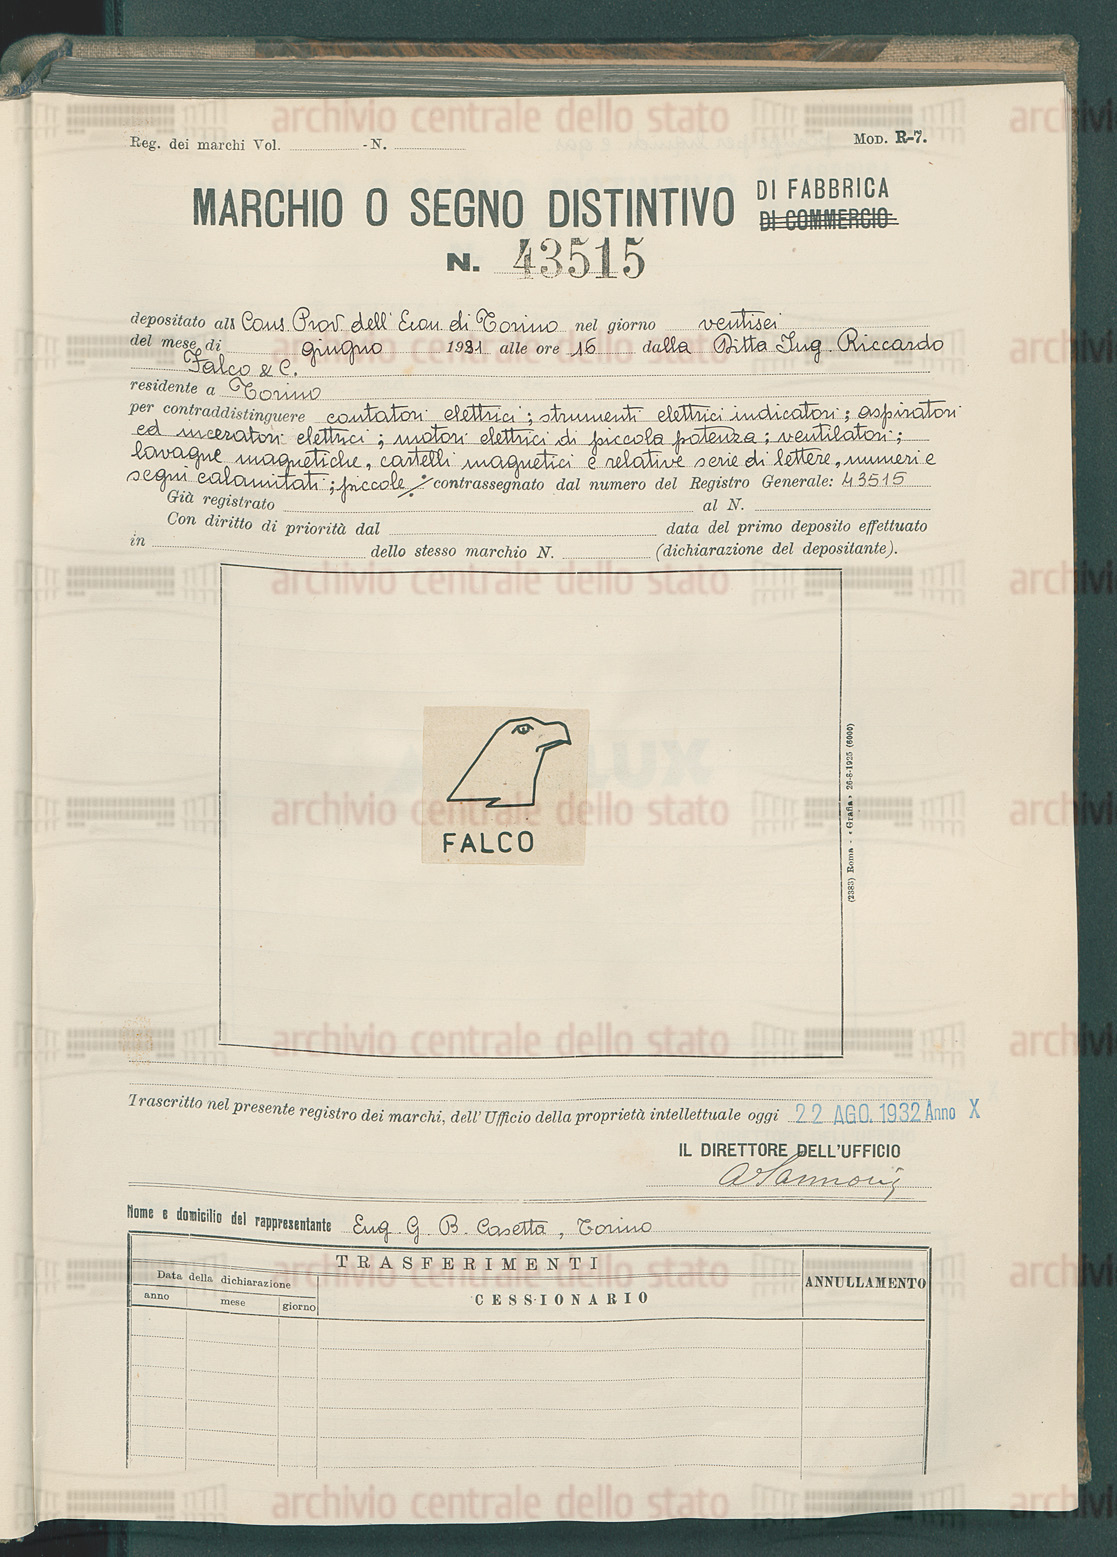 Reg. dei marchi Vol. - N. Mod. R-7.
MARCHIO O SEGNO DISTINTIVO DI FABBRICA
DI COMMERCIO
N. 43515
depositato al Cons. Prov. dell' Econ. di Torino nel giorno ventisei
del mese di giugno 1931 alle ore 16 dalla Ditta Ing. Riccardo
Falco & C.
residente a Torino
per contraddistinguere contatori elettrici; strumenti elettrici indicatori; aspiratori
ed inceratori elettrici; motori elettrici di piccola potenza; ventilatori;
lavagne magnetiche, cartelli magnetici e relative serie di lettere, numeri e
segni calamitati; piccole ./. contrassegnato dal numero del Registro Generale: 43515
Già registrato al N.
Con diritto di priorità dal data del primo deposito effettuato
in dello stesso marchio N. (dichiarazione del depositante).
FALCO
(2383) Roma - «Grafia» 26-8-1925 (6000)
Trascritto nel presente registro dei marchi, dell'Ufficio della proprietà intellettuale oggi 22 AGO. 1932 Anno X
IL DIRETTORE DELL'UFFICIO
Nome e domicilio del rappresentante Eug. G. B. Casetta, Torino
TRASFERIMENTI
Data della dichiarazione
anno mese giorno
CESSIONARIO
ANNULLAMENTO
archivio centrale dello stato